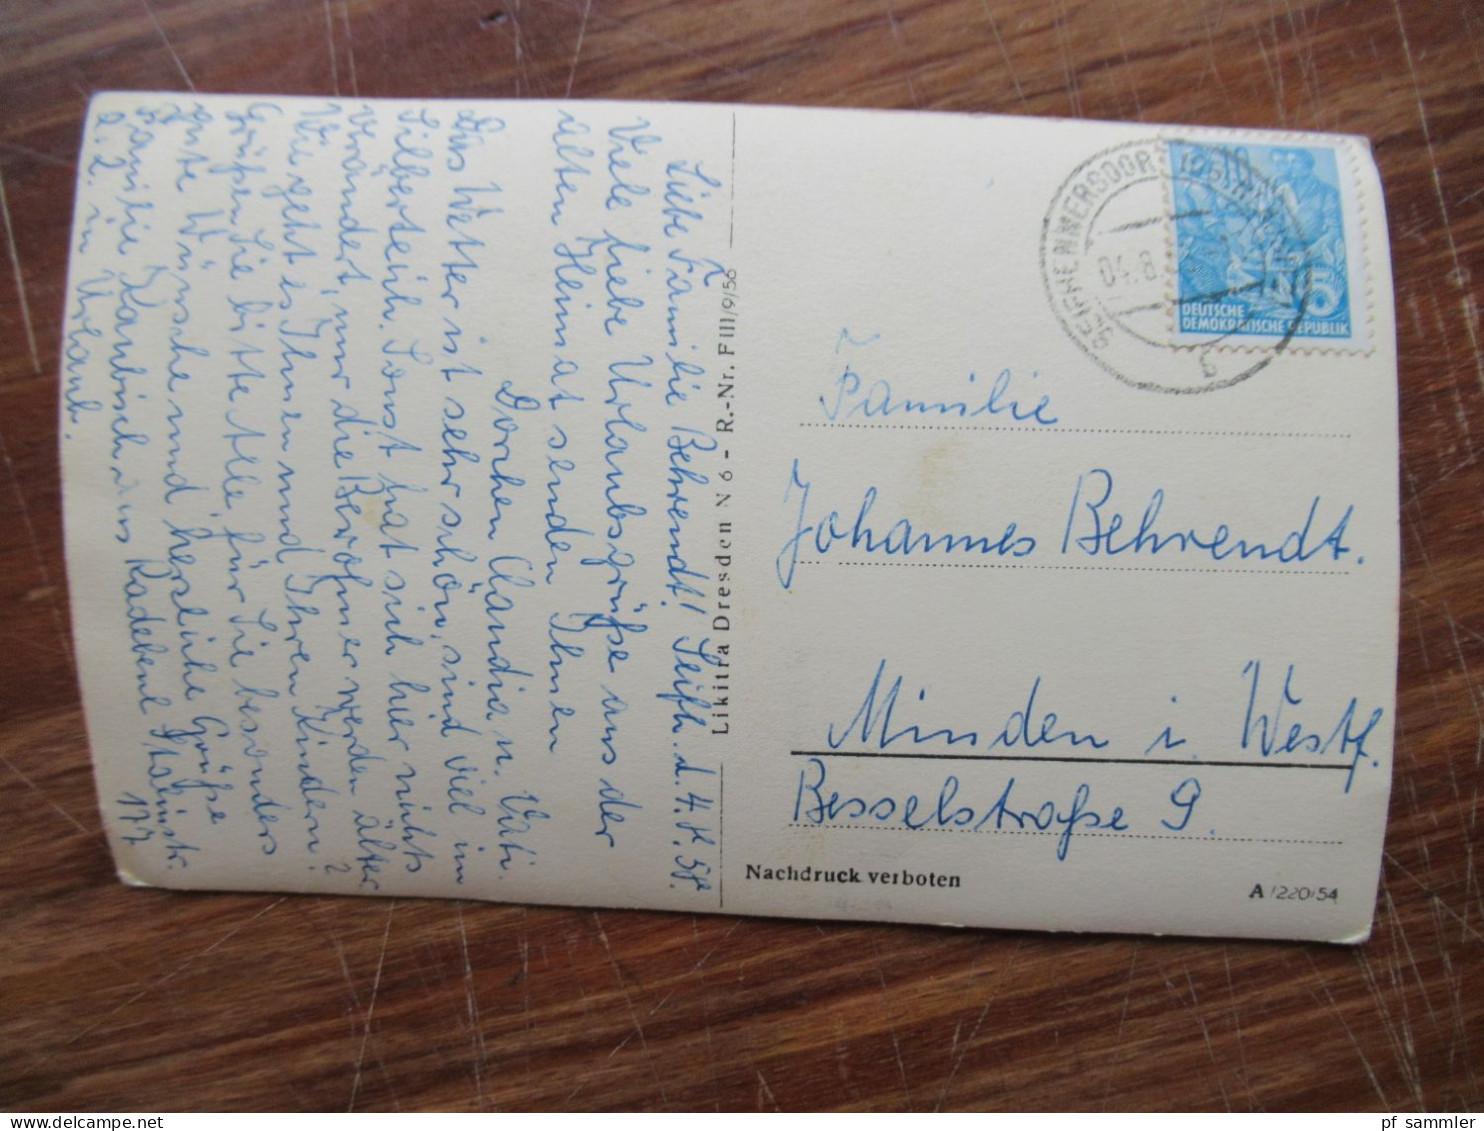 Liebe Familie Behrendt! Seifh. d. 4. 8. 58.
Viele liebe Urlaubsgrüße aus der
alten Heimat senden Ihnen
Dorchen, Claudia u. Vati.
Das Wetter ist sehr schön, sind viel im
Silberteich. Sonst hat sich hier nichts
verändert, nur die Bewohner werden älter.
Wie geht es Ihnen und Ihren Kindern?
Grüßen Sie bitte alle, für Sie besonders
gute Wünsche und herzliche Grüße
Familie Kaubisch aus Radebeul Stalinstr.
z. Z. in Urlaub. 177
Likitra Dresden N 6 - R.-Nr. F III/9/56
SEIFHENNERSDORF
04.8.
b
10
5
DEUTSCHE
DEMOKRATISCHE REPUBLIK
Familie
Johannes Behrendt.
Minden i. Westf.
Besselstraße 9.
Nachdruck verboten
A 1220/54
pf sammler